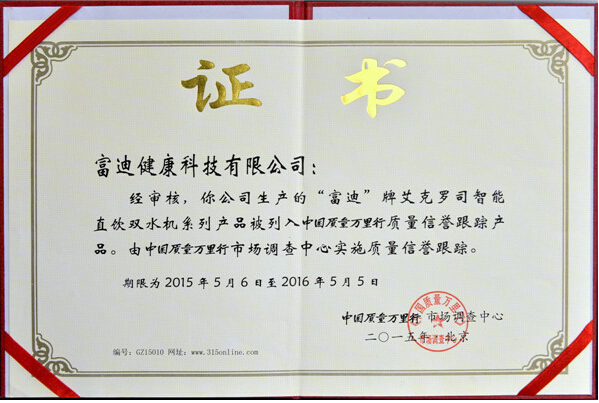 证书
富迪健康科技有限公司：
经审核，你公司生产的“富迪”牌艾克罗司智能
直饮双水机系列产品被列入中国质量万里行质量信誉跟踪产
品。由中国质量万里行市场调查中心实施质量信誉跟踪。
期限为2015年5月6日至2016年5月5日
中国质量万里行 市场调查中心
二〇一五年·北京
编号：GZ15010 网址：www.315online.com
中国质量万里行
市场调查中心